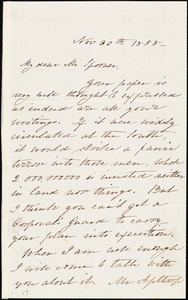 Nov 30th 1858-
My dear Mr Spooner,
Your paper is
very well thought & expressed
as indeed are all your
writings. If it were widely
circulated at the South,
it would strike a panic
terror into those men, whose
2 000 000 000 is invested neither
in land nor things. But
I think you can't get a
Corporal's Guard to carry
your plan into execution.
When I am well enough
I will come & talk with
you about it.